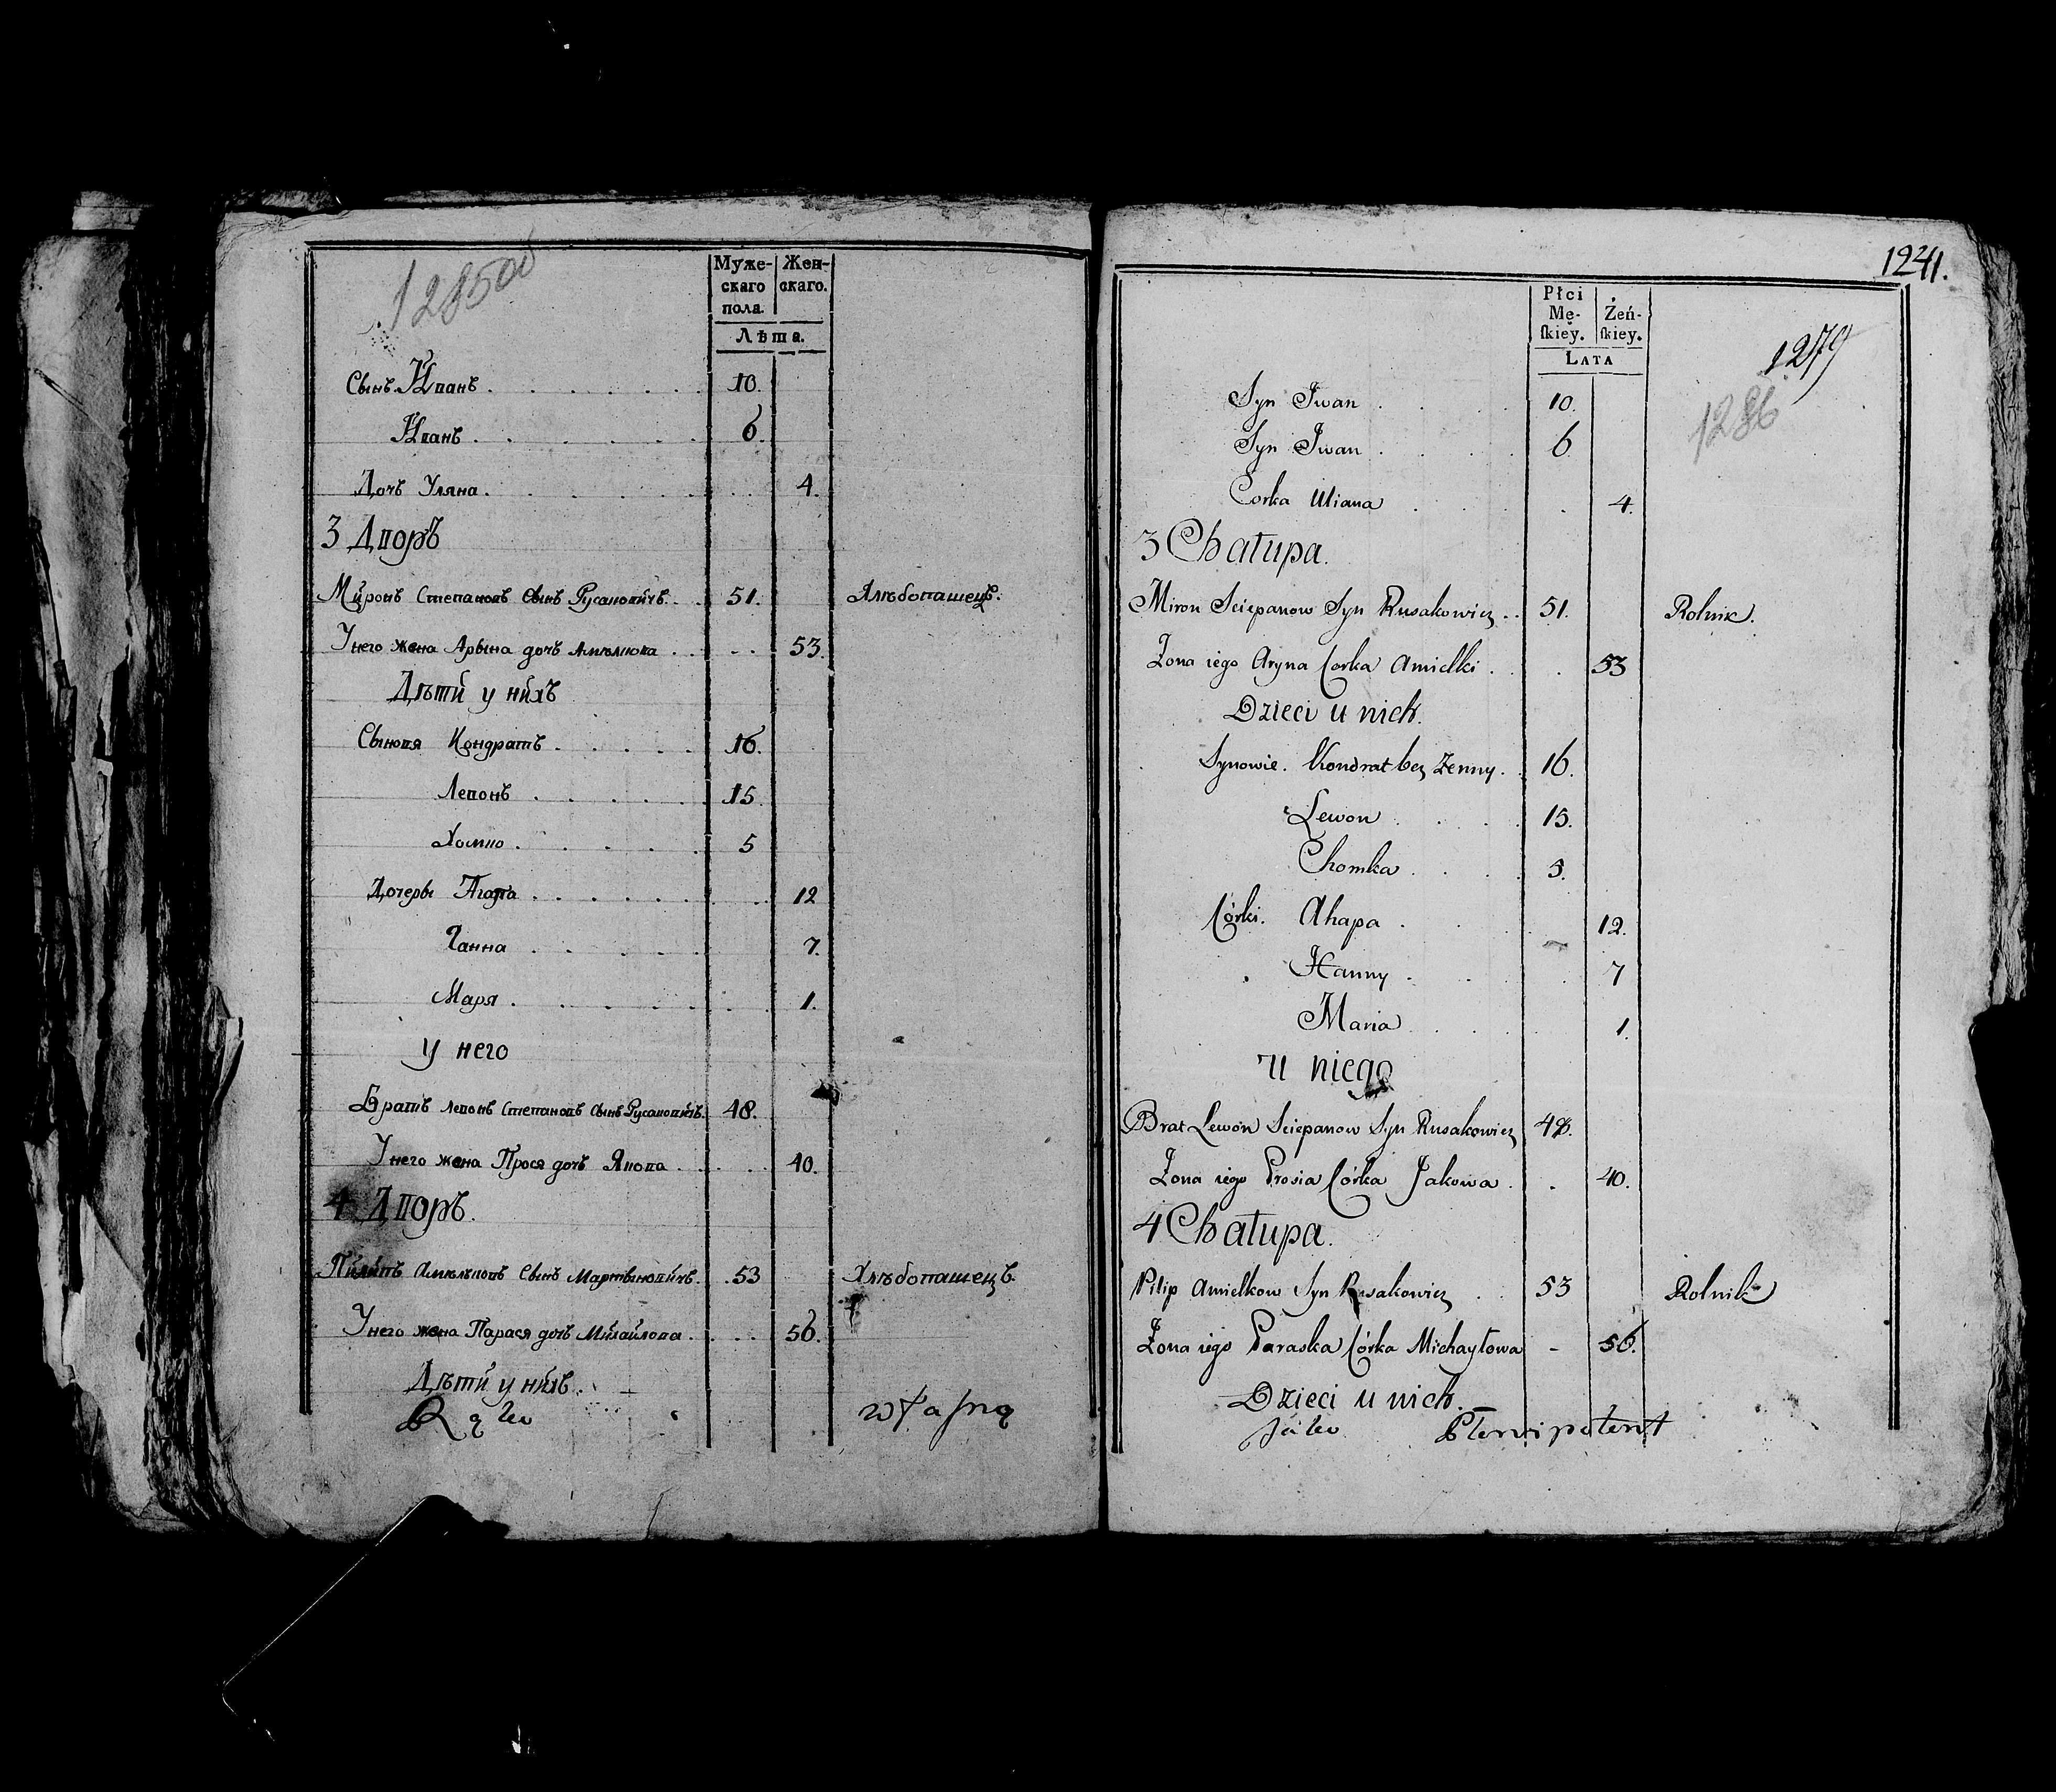 12850б
Муже-
скаго
пола.
Жен-
скаго.
Лѣта.
Сынъ Иванъ 10.
Иванъ 6.
Дочъ Уляна 4.
3 Дворъ
Миронъ Степановъ Сынъ Русаковичъ 51. Хлѣбопашецъ.
Унего жена Арына дочъ Амѣлкова 53.
Дѣти у нихъ
Сыновя Кондратъ 16.
Левонъ 15.
Хомко 5
Дочеры Агапа 12
Ганна 7.
Маря 1.
У него
Братъ Левонъ Степановъ Сынъ Русаковичъ 48.
Унего жена Прося дочъ Якова 40.
4 Дворъ.
Пилипъ Амѣлковъ Сынъ Мартыновичъ 53 Хлѣбопашецъ.
Унего жена Парася дочъ Михайлова 56.
Дѣти у нихъ.
Ręko własną
1241.
Płci
Mę-
skiey.
Żeń-
skiey.
LATA
1279
1286
Syn Iwan 10.
Syn Iwan 6
Corka Uliana 4.
3 Chałupa.
Miron Sciepanow Syn Rusakowicz 51. Rolnik.
Zona iego Aryna Corka Amielki 53
Dzieci u nich.
Synowie. Kondrat bez Zenny 16.
Lewon 15.
Chomka 5.
Córki. Ahapa 12.
Hanny 7
Maria 1.
u niego
Brat Lewon Sciepanow Syn Rusakowicz 48.
Zona iego Prosia Córka Jakowa 40.
4 Chałupa.
Pilip Amielkow Syn Rusakowicz 53 Rolnik
Zona iego Paraska Córka Michayłowa 56.
Dzieci u nich.
jako Plenipotent